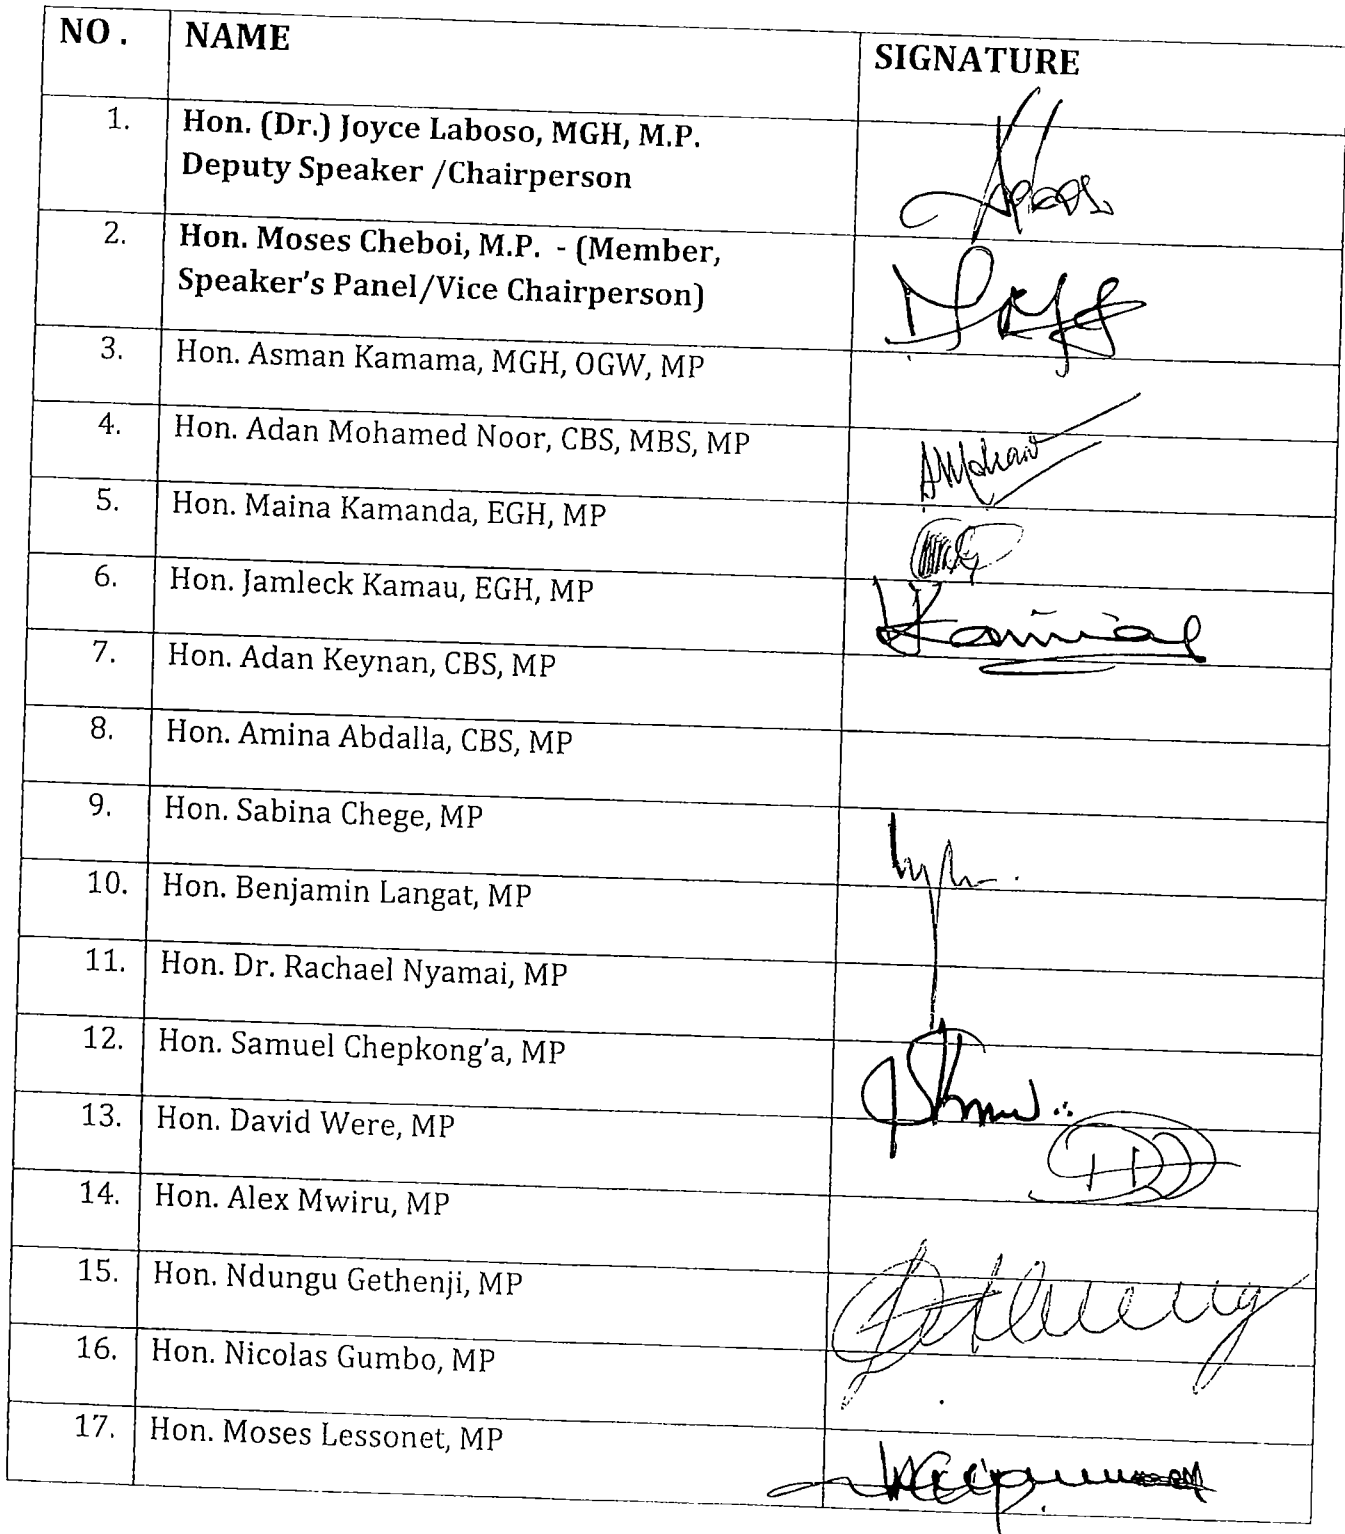 NO . NAME SIGNATURE
1. Hon. (Dr.) Joyce Laboso, MGH, M.P.
Deputy Speaker /Chairperson
2. Hon. Moses Cheboi, M.P. - (Member,
Speaker's Panel/Vice Chairperson)
3. Hon. Asman Kamama, MGH, OGW, MP
4. Hon. Adan Mohamed Noor, CBS, MBS, MP
5. Hon. Maina Kamanda, EGH, MP
6. Hon. Jamleck Kamau, EGH, MP
7. Hon. Adan Keynan, CBS, MP
8. Hon. Amina Abdalla, CBS, MP
9. Hon. Sabina Chege, MP
10. Hon. Benjamin Langat, MP
11. Hon. Dr. Rachael Nyamai, MP
12. Hon. Samuel Chepkong'a, MP
13. Hon. David Were, MP
14. Hon. Alex Mwiru, MP
15. Hon. Ndungu Gethenji, MP
16. Hon. Nicolas Gumbo, MP
17. Hon. Moses Lessonet, MP